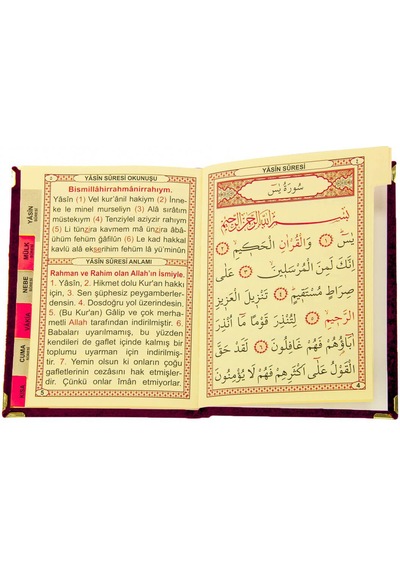 YÂSÎN SÛRESİ OKUNUŞU
Bismillâhirrahmânirrahıym.
Yâsîn (1) Vel kur'ânil hakiym (2) İnne-
ke le minel murseliyn (3) Alâ sırâtım
müstekıym (4) Tenziylel aziyzir rahıym
(5) Li tünzira kavmem mâ ünzira âbâ-
ühüm fehüm gâfilûn (6) Le kad hakkal
kavlü alâ ekserihim fehüm lâ yü'minûn
YÂSÎN SÛRESİ ANLAMI
Rahman ve Rahim olan Allah'ın İsmiyle.
1. Yâsîn, 2. Hikmet dolu Kur'an hakkı
için, 3. Sen şüphesiz peygamberler-
densin. 4. Dosdoğru yol üzerindesin.
5. (Bu Kur'an) Gâlip ve çok merha-
metli Allah tarafından indirilmiştir. 6.
Babaları uyarılmamış, bu yüzden
kendileri de gaflet içinde kalmış bir
toplumu uyarman için indirilmiş-
tir. 7. Yemin olsun ki onların çoğu
gafletlerinin cezasını hak etmişler-
dir. Çünkü onlar îmân etmiyorlar.
5
YÂSÎN
SÛRESİ
MÜLK
SÛRESİ
NEBE
SÛRESİ
CUMA
SÛRESİ
YÂSÎN SÛRESİ
سُورَةُ يٰسٓ
بِسْمِ اللّٰهِ الرَّحْمٰنِ الرَّحِيمِ
يٰسٓ ﴿١﴾ وَالْقُرْاٰنِ الْحَكِيمِ ﴿٢﴾
اِنَّكَ لَمِنَ الْمُرْسَلِينَ ﴿٣﴾ عَلٰى
صِرَاطٍ مُسْتَقِيمٍ ﴿٤﴾ تَنْزِيلَ الْعَزِيزِ
الرَّحِيمِ ﴿٥﴾ لِتُنْذِرَ قَوْمًا مَا اُنْذِرَ
اٰبَاؤُهُمْ فَهُمْ غَافِلُونَ ﴿٦﴾ لَقَدْ حَقَّ
الْقَوْلُ عَلٰى اَكْثَرِهِمْ فَهُمْ لَا يُؤْمِنُونَ
4